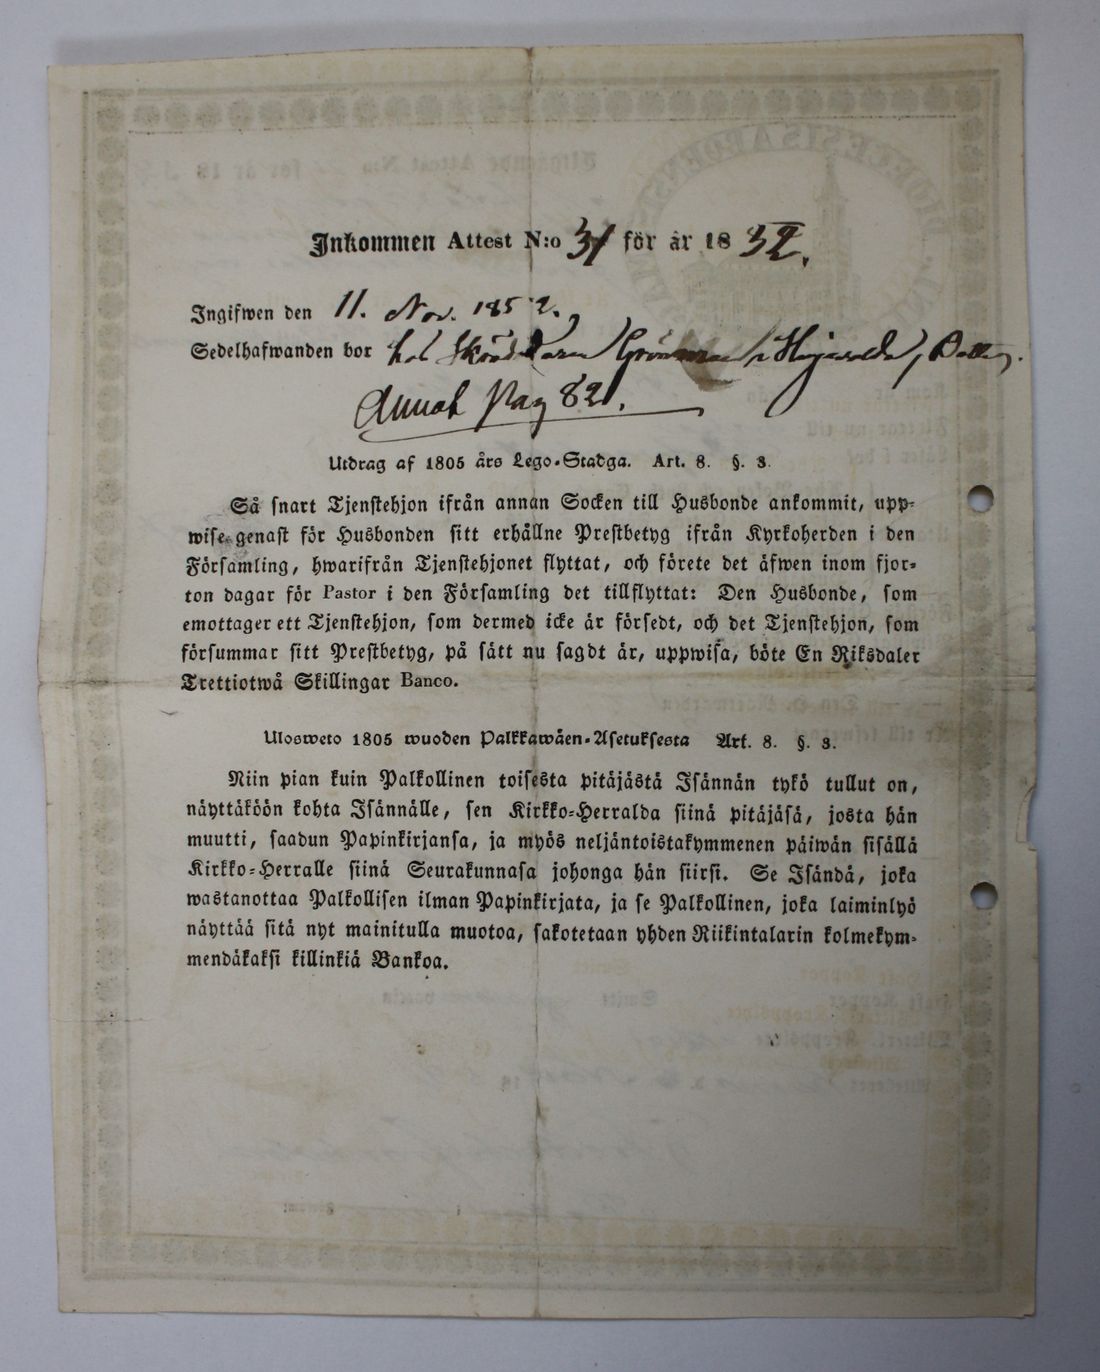 Inkommen Attest N:o 31 för år 18 52.
Ingifwen den 11. Nov. 1852.
Sedelhafwanden bor hos i
Annot. Pag 82.
Utdrag af 1805 års Lego-Stadga. Art. 8. §. 3.
Så snart Tjenstehjon ifrån annan Socken till Husbonde ankommit, upp-
wise genast för Husbonden sitt erhållne Prestbetyg ifrån Kyrkoherden i den
Församling, hwarifrån Tjenstehjonet flyttat, och förete det äfwen inom fjor-
ton dagar för Pastor i den Församling det tillflyttat: Den Husbonde, som
emottager ett Tjenstehjon, som dermed icke är försedt, och det Tjenstehjon, som
försummar sitt Prestbetyg, på sätt nu sagdt är, uppwisa, böte En Riksdaler
Trettiotwå Skillingar Banco.
Ulosweto 1805 wuoden Palkkawäen-Asetuksesta Art. 8. §. 3.
Niin pian kuin Palkollinen toisesta pitäjästä Isännän tykö tullut on,
näyttäköön kohta Isännälle, sen Kirkko-Herralda siinä pitäjäsä, josta hän
muutti, saadun Papinkirjansa, ja myös neljäntoistakymmenen päiwän sisällä
Kirkko-Herralle siinä Seurakunnasa johonga hän siirsi. Se Isändä, joka
wastanottaa Palkollisen ilman Papinkirjata, ja se Palkollinen, joka laiminlyö
näyttää sitä nyt mainitulla muotoa, sakotetaan yhden Riikintalarin kolmekym-
mendäkaksi killinkiä Bankoa.